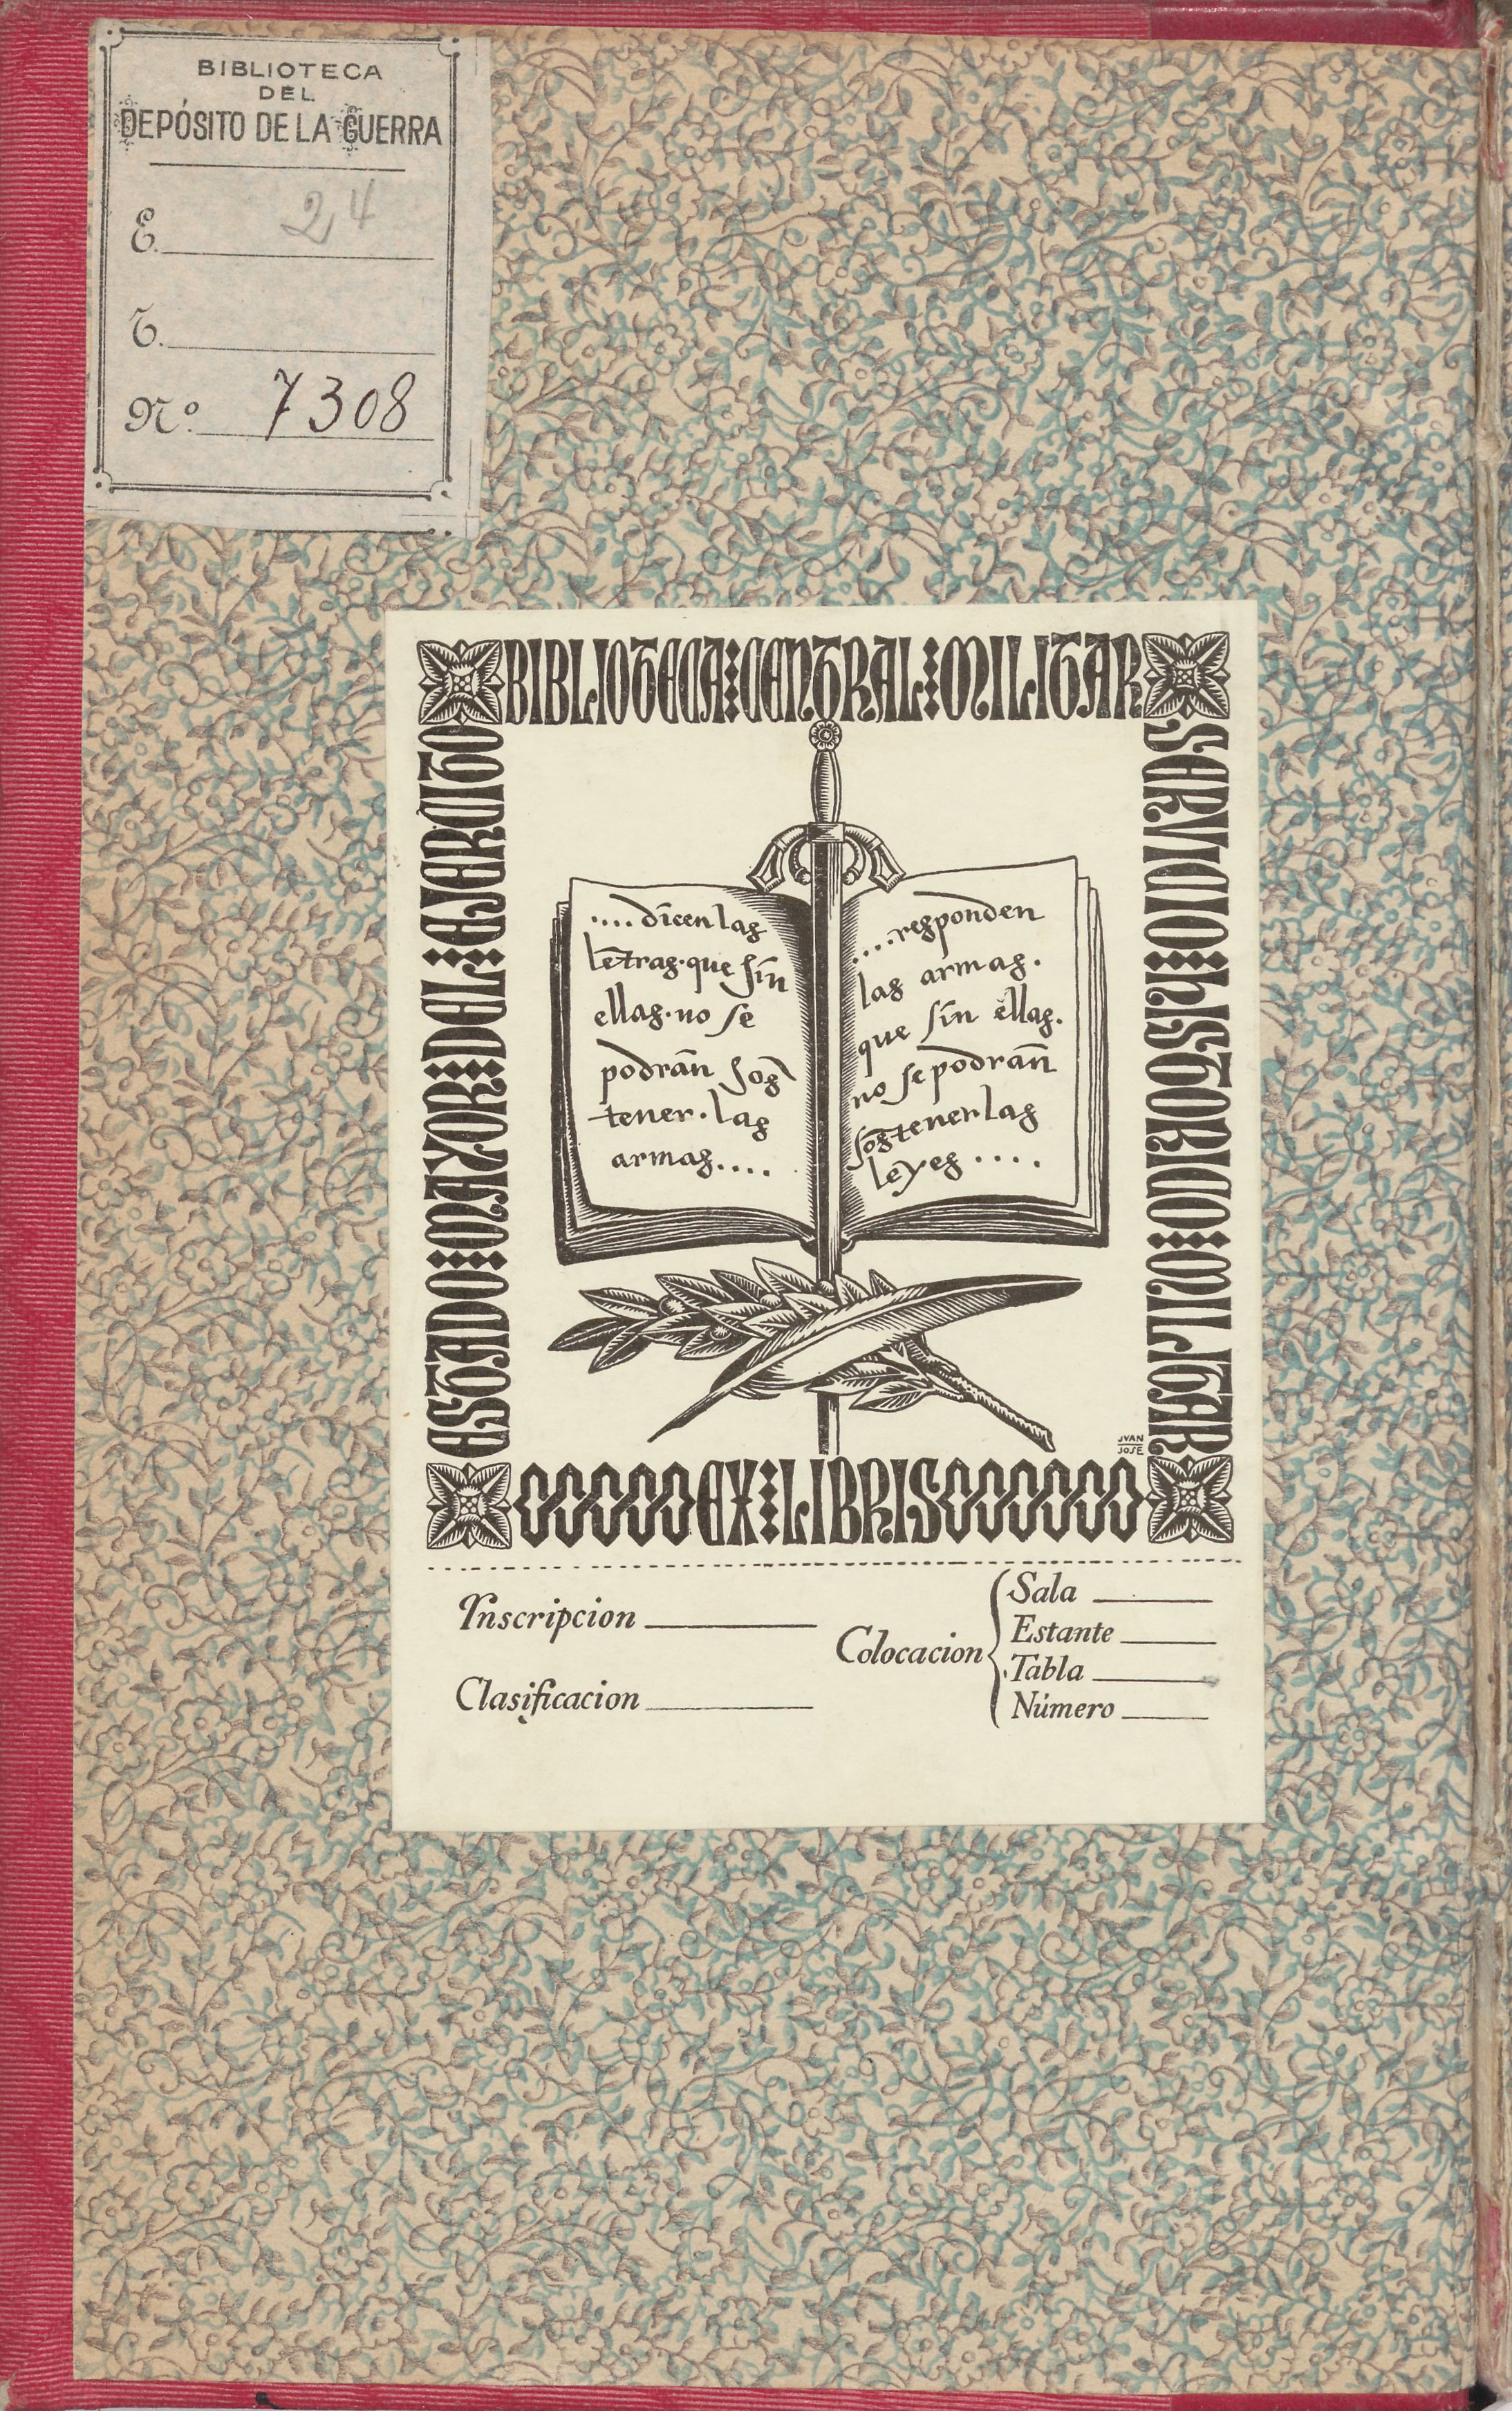 BIBLIOTECA
DEL
DEPÓSITO DE LA GUERRA
E. 24
T.
Nº. 7308
BIBLIOTECA CENTRAL MILITAR
ESTADO MAYOR DEL EJERCITO
SERVICIO HISTORICO MILITAR
....dicen las
letras·que sin
ellas·no se
podrán sos
tener·las
armas....
....responden
las armas·
que sin ellas·
no se podrán
sostener las
leyes....
JVAN
JOSE
EX LIBRIS
Inscripcion
Clasificacion
Colocacion
Sala
Estante
Tabla
Número